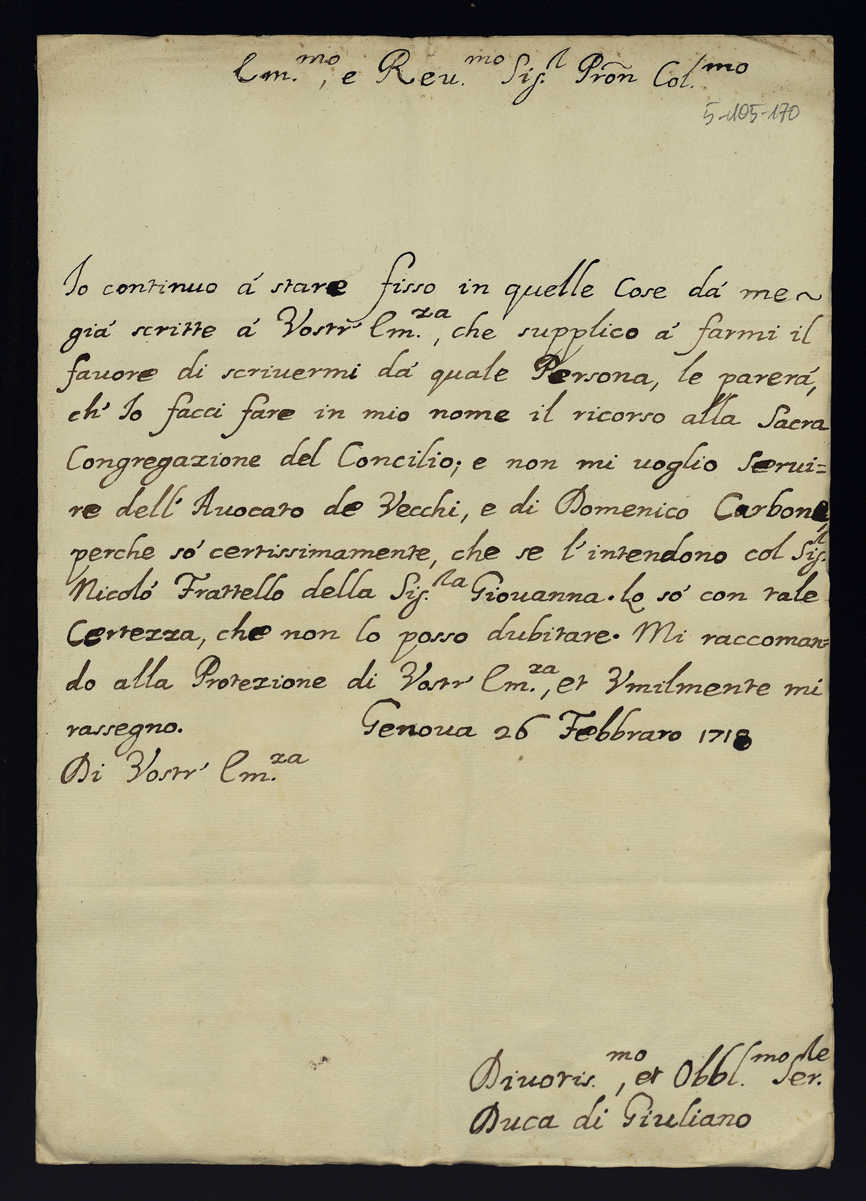 Em.mo, e Reu.mo Sig.r Pron Col.mo
5-105-170
Io continuo á stare fisso in quelle Cose dá me~
giá scritte á Vostr' Em.za, che supplico á farmi il
fauore di scriuermi dá quale Persona, le parerá,
ch' Io facci fare in mio nome il ricorso alla Sacra
Congregazione del Concilio; e non mi uoglio serui=
re dell' Auocato de Vecchi, e di Domenico Carbone,
perche só certissimamente, che se l'intendono col Sig.r
Nicoló Frattello della Sig.ra Giouanna. Lo só con tale
Certezza, che non lo posso dubitare. Mi raccoman=
do alla Protezione di Vostr' Em.za, et Vmilmente mi
rassegno. Genoua 26 Febbraro 1718
Di Vostr' Em.za
Diuotis.mo, et Obbl.mo Ser.re
Duca di Giuliano